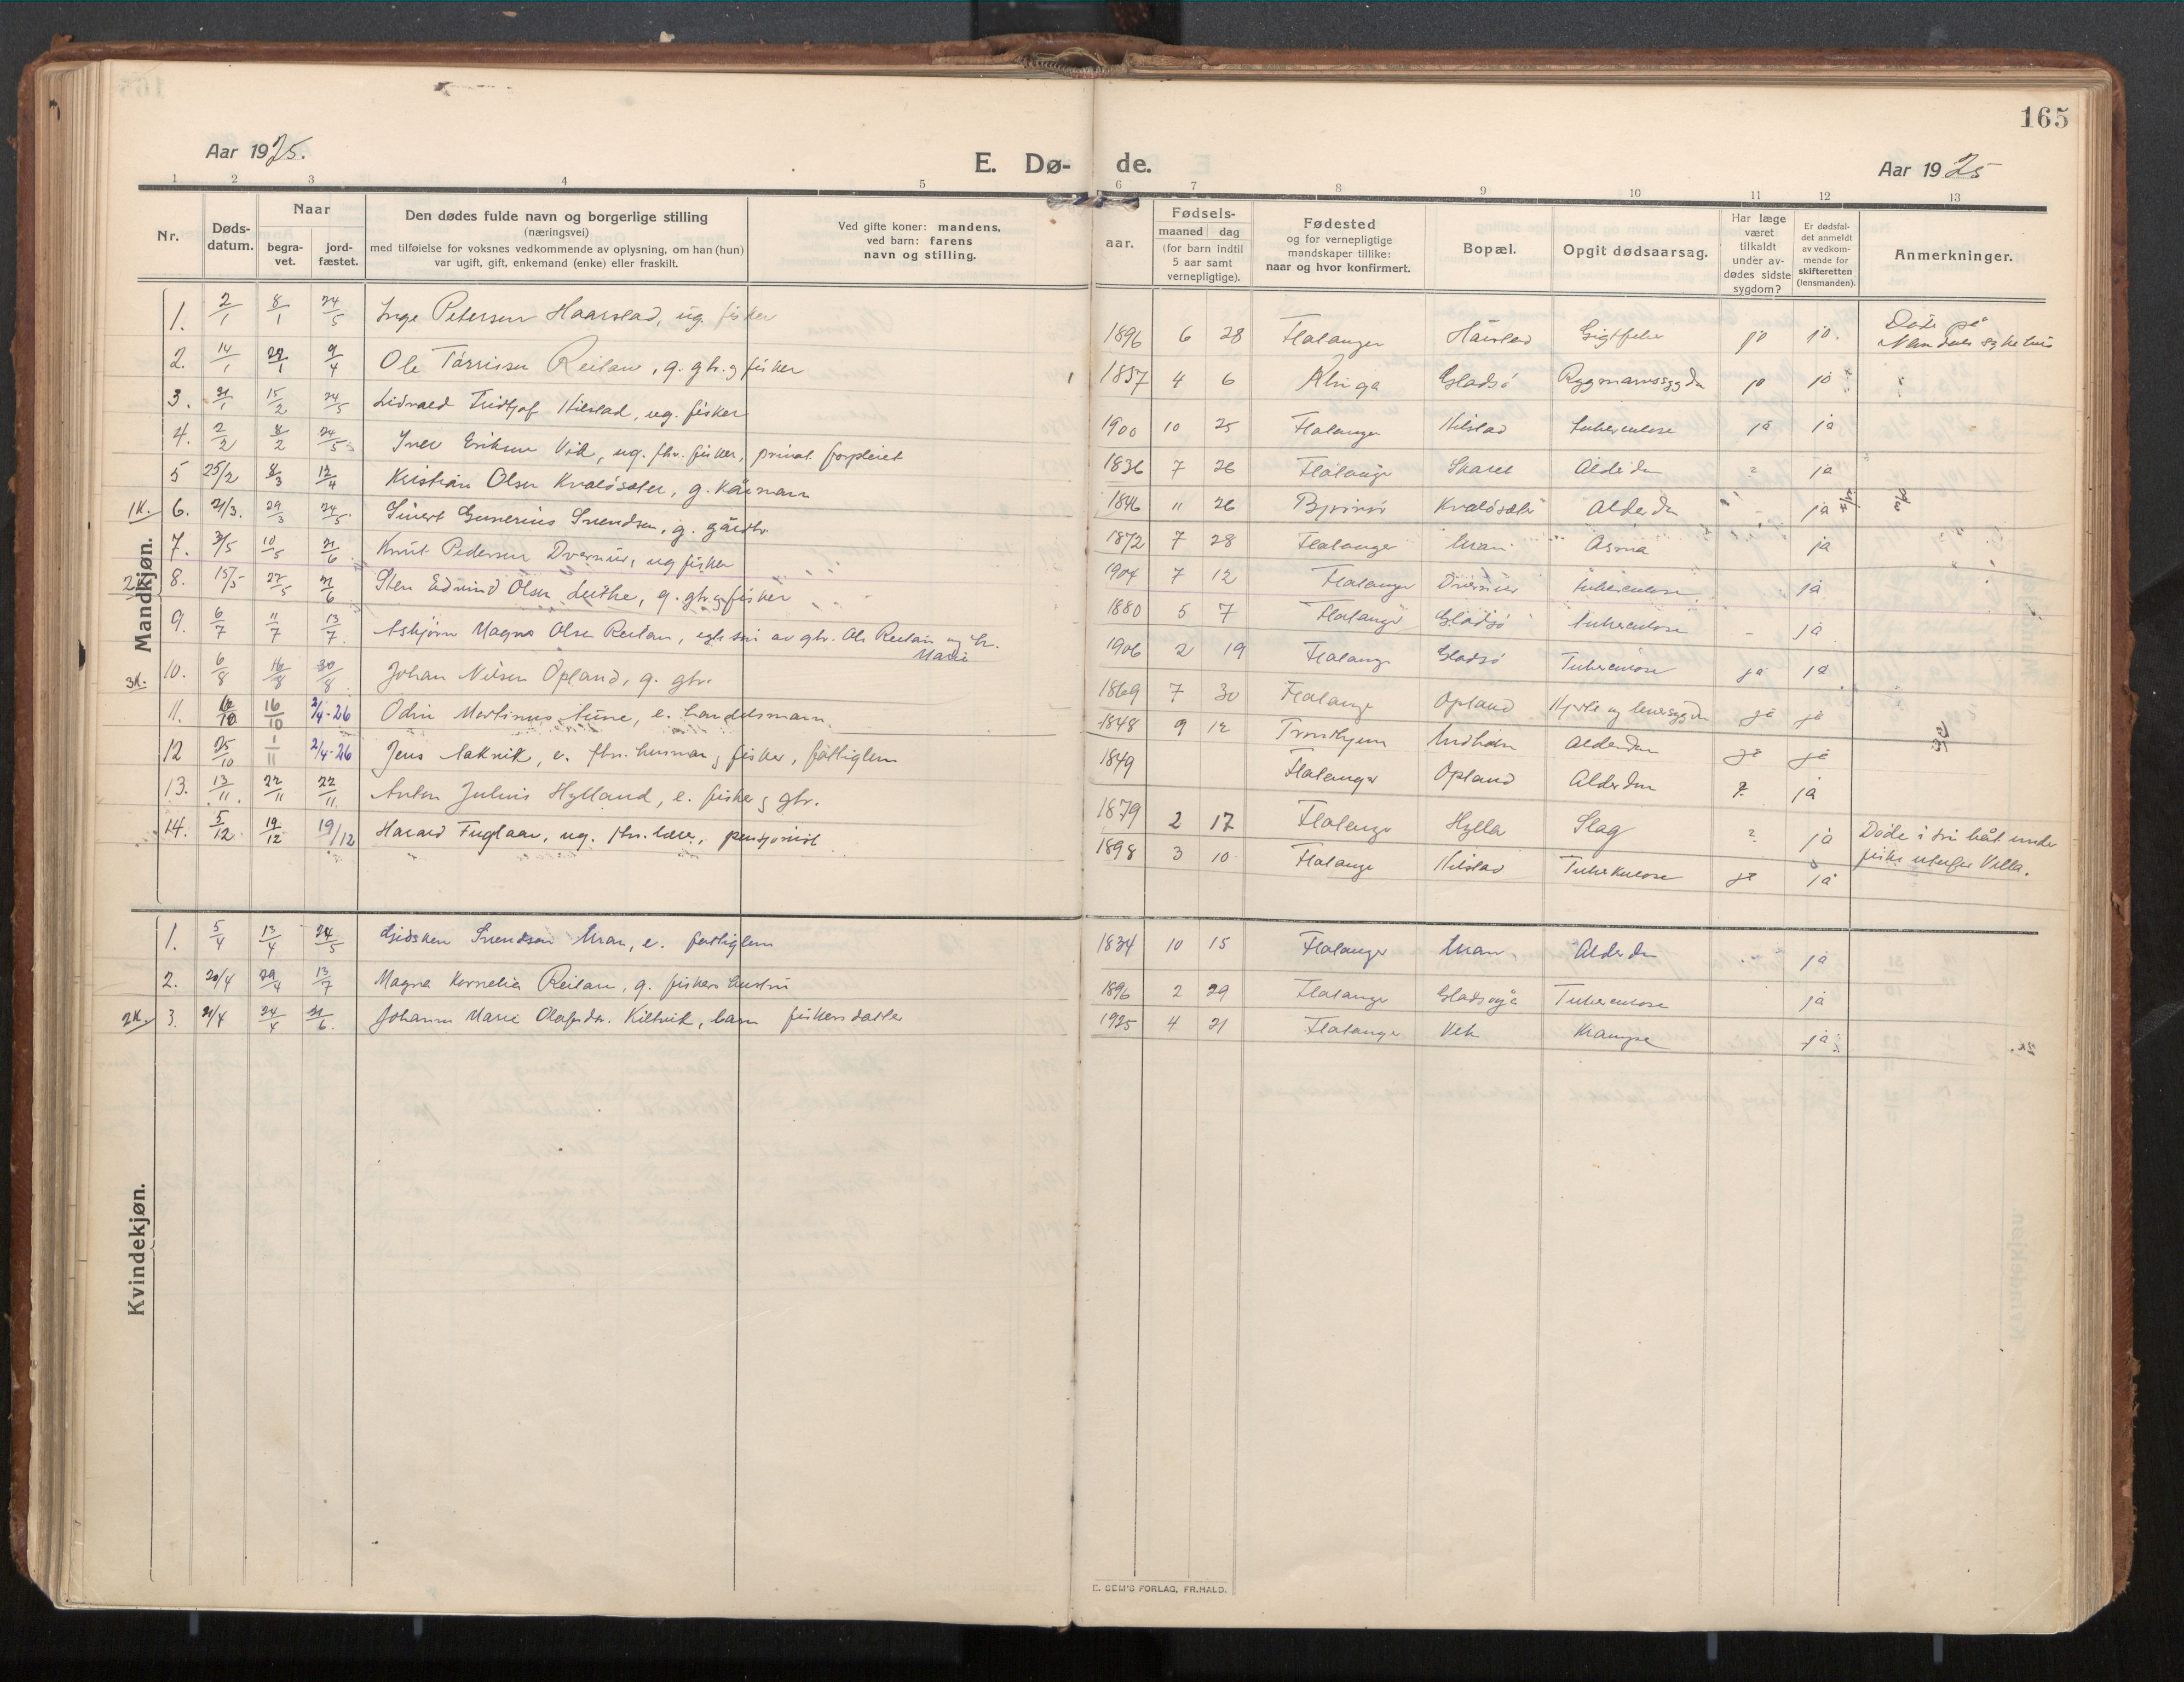 165
Aar 1925.
E. Dø- de.
Aar 1925
1 2 3 4 5 6 7 8 9 10 11 12 13
Nr.
Døds-
datum.
Naar
begra-
vet.
jord-
fæstet.
Den dødes fulde navn og borgerlige stilling
(næringsvei)
med tilføielse for voksnes vedkommende av oplysning, om han (hun)
var ugift, gift, enkemand (enke) eller fraskilt.
Ved gifte koner: mandens,
ved barn: farens
navn og stilling.
aar.
Fødsels-
maaned dag
(for barn indtil
5 aar samt
vernepligtige).
Fødested
og for vernepligtige
mandskaper tillike:
naar og hvor konfirmert.
Bopæl.
Opgit dødsaarsag.
Har læge
været
tilkaldt
under av-
dødes sidste
sygdom?
Er dødsfal-
det anmeldt
av vedkom-
mende for
skifteretten
(lensmanden).
Anmerkninger.
Mandkjøn.
1. 2/1 8/1 24/5 Inge Petersen Haarstad, ug. fisker 1896 6 28 Flatanger Hårstad Gigtfeber ja ja. Døde på Namdals sykehus
2. 14/1 9/4 Ole Tørrissen Reitan, g. gbr. og fisker 1857 4 6 Klinga Gladsø Rygmarvssygdom ja ja
3. 31/1 15/2 24/5 Fridtjof Kilstad, ug. fisker 1900 10 25 Flatanger Kilstad tuberculose ja ja
4. 2/2 8/2 24/5 Iver Eriksen Vik, ug. fhv. fisker, privat forpleiet 1836 7 26 Flatanger Alderdom ? ja
5 25/2 8/3 12/4 Kristian Olsen Kvaløsæter, g. kårmann 1846 11 26 Bjørnør Kvaløsæter Alderdom - ja
1K. 6. 21/3. 29/3 24/5 Sivert Gunerius Svendsen, g. gårdbr. 1872 7 28 Flatanger Uran Asma ja
7. 3/5 10/5 21/6 Knut Pedersen Dversnes, ug fisker 1904 7 12 Flatanger Dversnes tuberculose ja
8. 15/5 22/5 21/6 Sten Edvind Olsen, g. gbr. og fisker 1880 5 7 Flatanger Gladsø tuberculose - ja
9. 6/7 11/7 13/7 Asbjørn Magne Olsen Reitan, egte søn av gbr. Ole Reitan og h. Marie 1906 2 19 Flatanger Gladsø Tuberculose ja ja
3K. 10. 6/8 16/8 30/8 Johan Nilsen Opland, g. gbr. 1869 7 30 Flatanger Opland Hjerte og leversygdom ja ja
11. 16/10 2/4-26 Odin Martinus Aune, e. handelsmann 1848 9 12 Trondhjem Alderdom ja ja
12 25/10 1/11 2/4-26 Jens Laknik, e. fhv. husmann og fisker, fattiglem 1849 Flatanger Opland Alderdom ? ja
13. 13/11 22/11 22/11 Anton Julius Hylland, e. fisker og gbr. 1879 2 17 Flatanger Hylla Slag ? ja Døde i sin båt under fiske utenfor Villa.
14. 5/12 19/12 19/12 Harald Fuglaar, ug. fhv. lærer, pensjonist 1898 3 10 Flatanger Kilstad Tuberkulose ja ja
Kvindekjøn.
1. 5/4 13/4 24/5 Gidsken Svendsen Uran, e. fattiglem 1834 10 15 Flatanger Uran Alderdom ja
2. 20/4 29/4 13/7 Magna Kornelia Reitan, g. fiskers hustru 1896 2 29 Flatanger Tuberculose ja
2K. 3. 21/4 24/4 21/6. Johanne Marie Olafsdtr. Kiltvik, barn fiskers datter 1925 4 21 Flatanger Vik Krampe ja
E. SEM'S FORLAG, FR.HALD.